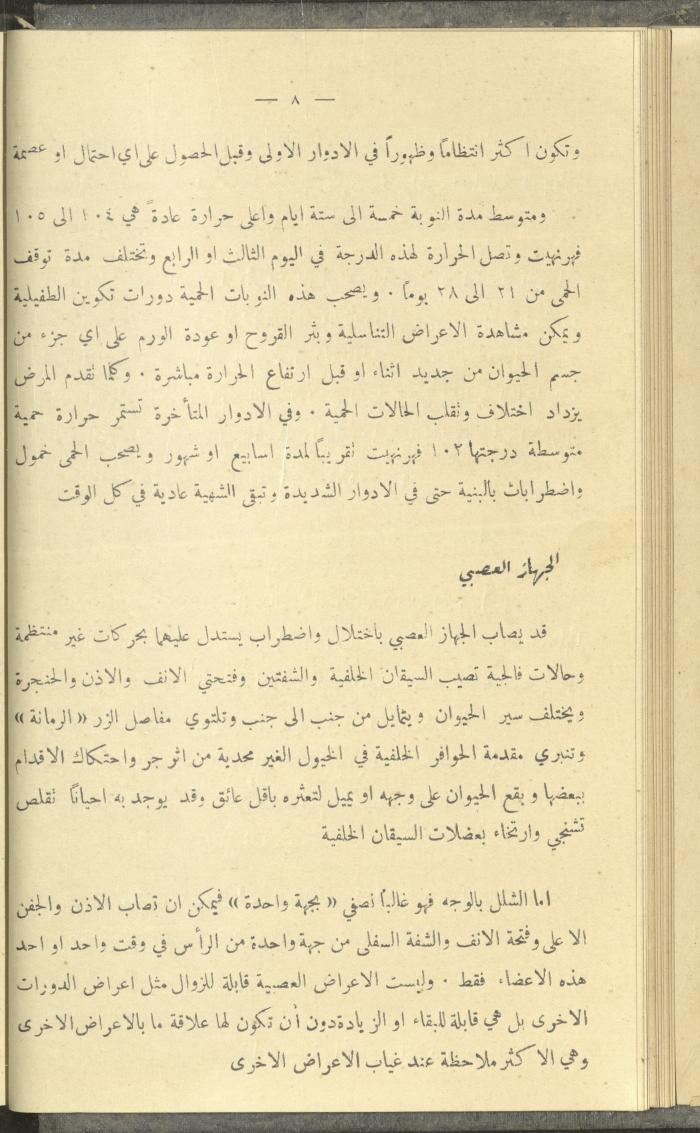 — ٨ —
وتكون اكثر انتظاماً وظهوراً في الادوار الاولى وقبل الحصول على اي احتمال او عصمة
ومتوسط مدة النوبة خمسة الى ستة ايام واعلى حرارة عادةً هي ١٠٤ الى ١٠٥
فهرنهيت وتصل الحرارة لهذه الدرجة في اليوم الثالث او الرابع وتختلف مدة توقف
الحمى من ٢١ الى ٢٨ يوماً ٠ ويصحب هذه النوبات الحمية دورات تكوين الطفيلية
ويمكن مشاهدة الاعراض التناسلية وبثر القروح او عودة الورم على اي جزء من
جسم الحيوان من جديد اثناء او قبل ارتفاع الحرارة مباشرة ٠ وكلما تقدم المرض
يزداد اختلاف وتقلب الحالات الحمية ٠ وفي الادوار المتأخرة تستمر حرارة حمية
متوسطة درجتها ١٠٢ فهرنهيت تقريباً لمدة اسابيع او شهور ويصحب الحمى خمول
واضطرابات بالبنية حتى في الادوار الشديدة وتبقى الشهية عادية في كل الوقت
الجهاز العصبي
قد يصاب الجهاز العصبي باختلال واضطراب يستدل عليهما بحركات غير منتظمة
وحالات فالجية تصيب السيقان الخلفية والشفتين وفتحتي الانف والاذن والحنجرة
ويختلف سير الحيوان ويتمايل من جنب الى جنب وتلتوي مفاصل الزر « الرمانة »
وتنبري مقدمة الحوافر الخلفية في الخيول الغير محدية من اثر جر واحتكاك الاقدام
ببعضها ويقع الحيوان على وجهه او يميل لتعثره باقل عائق وقد يوجد به احياناً تقلص
تشنجي وارتخاء بعضلات السيقان الخلفية
اما الشلل بالوجه فهو غالباً نصفي « بجهة واحدة » فيمكن ان تصاب الاذن والجفن
الاعلى وفتحة الانف والشفة السفلى من جهة واحدة من الرأس في وقت واحد او احد
هذه الاعضاء فقط ٠ وليست الاعراض العصبية قابلة للزوال مثل اعراض الدورات
الاخرى بل هي قابلة للبقاء او الزيادة دون أن تكون لها علاقة ما بالاعراض الاخرى
وهي الاكثر ملاحظة عند غياب الاعراض الاخرى